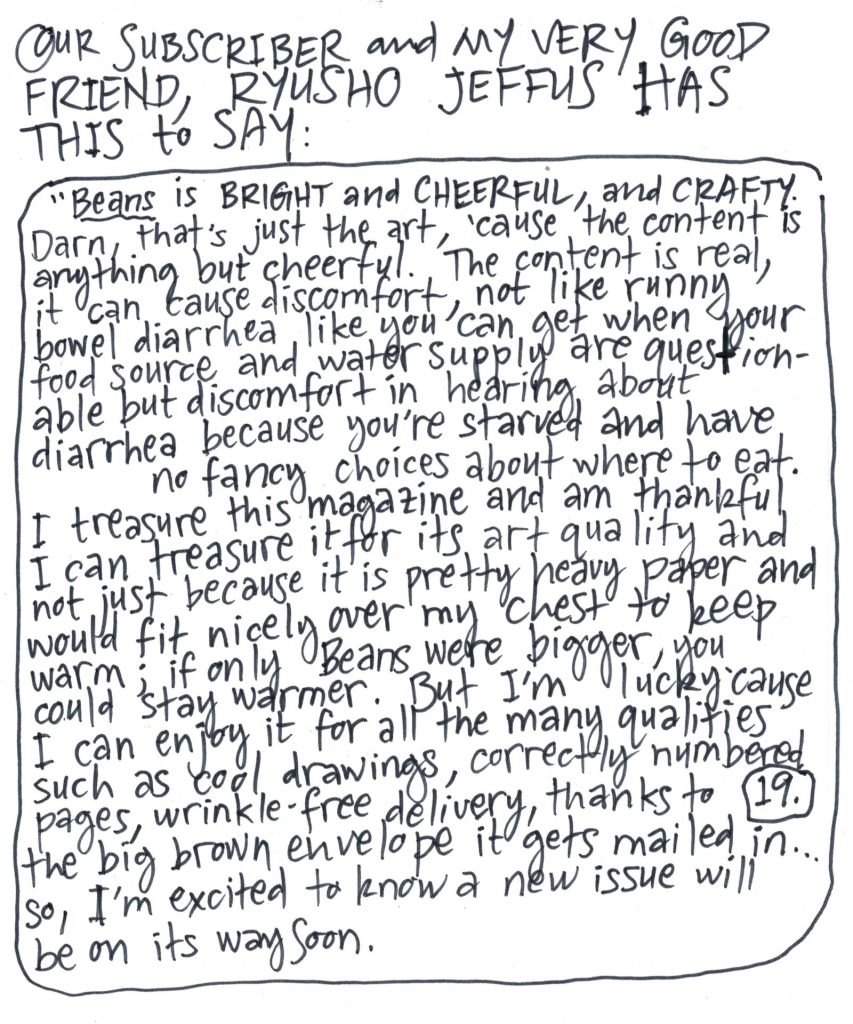 OUR SUBSCRIBER and MY VERY GOOD
FRIEND, RYUSHO JEFFUS HAS
THIS to SAY:
"Beans is BRIGHT and CHEERFUL, and CRAFTY.
Darn, that's just the art, 'cause the content is
anything but cheerful. The content is real,
it can cause discomfort, not like runny
bowel diarrhea like you can get when your
food source and water supply are question-
able but discomfort in hearing about
diarrhea because you're starved and have
no fancy choices about where to eat.
I treasure this magazine and am thankful
I can treasure it for its art quality and
not just because it is pretty heavy paper and
would fit nicely over my chest to keep
warm; if only Beans were bigger, you
could stay warmer. But I'm lucky 'cause
I can enjoy it for all the many qualities
such as cool drawings, correctly numbered
pages, wrinkle-free delivery, thanks to
19.
the big brown envelope it gets mailed in...
so, I'm excited to know a new issue will
be on its way soon.